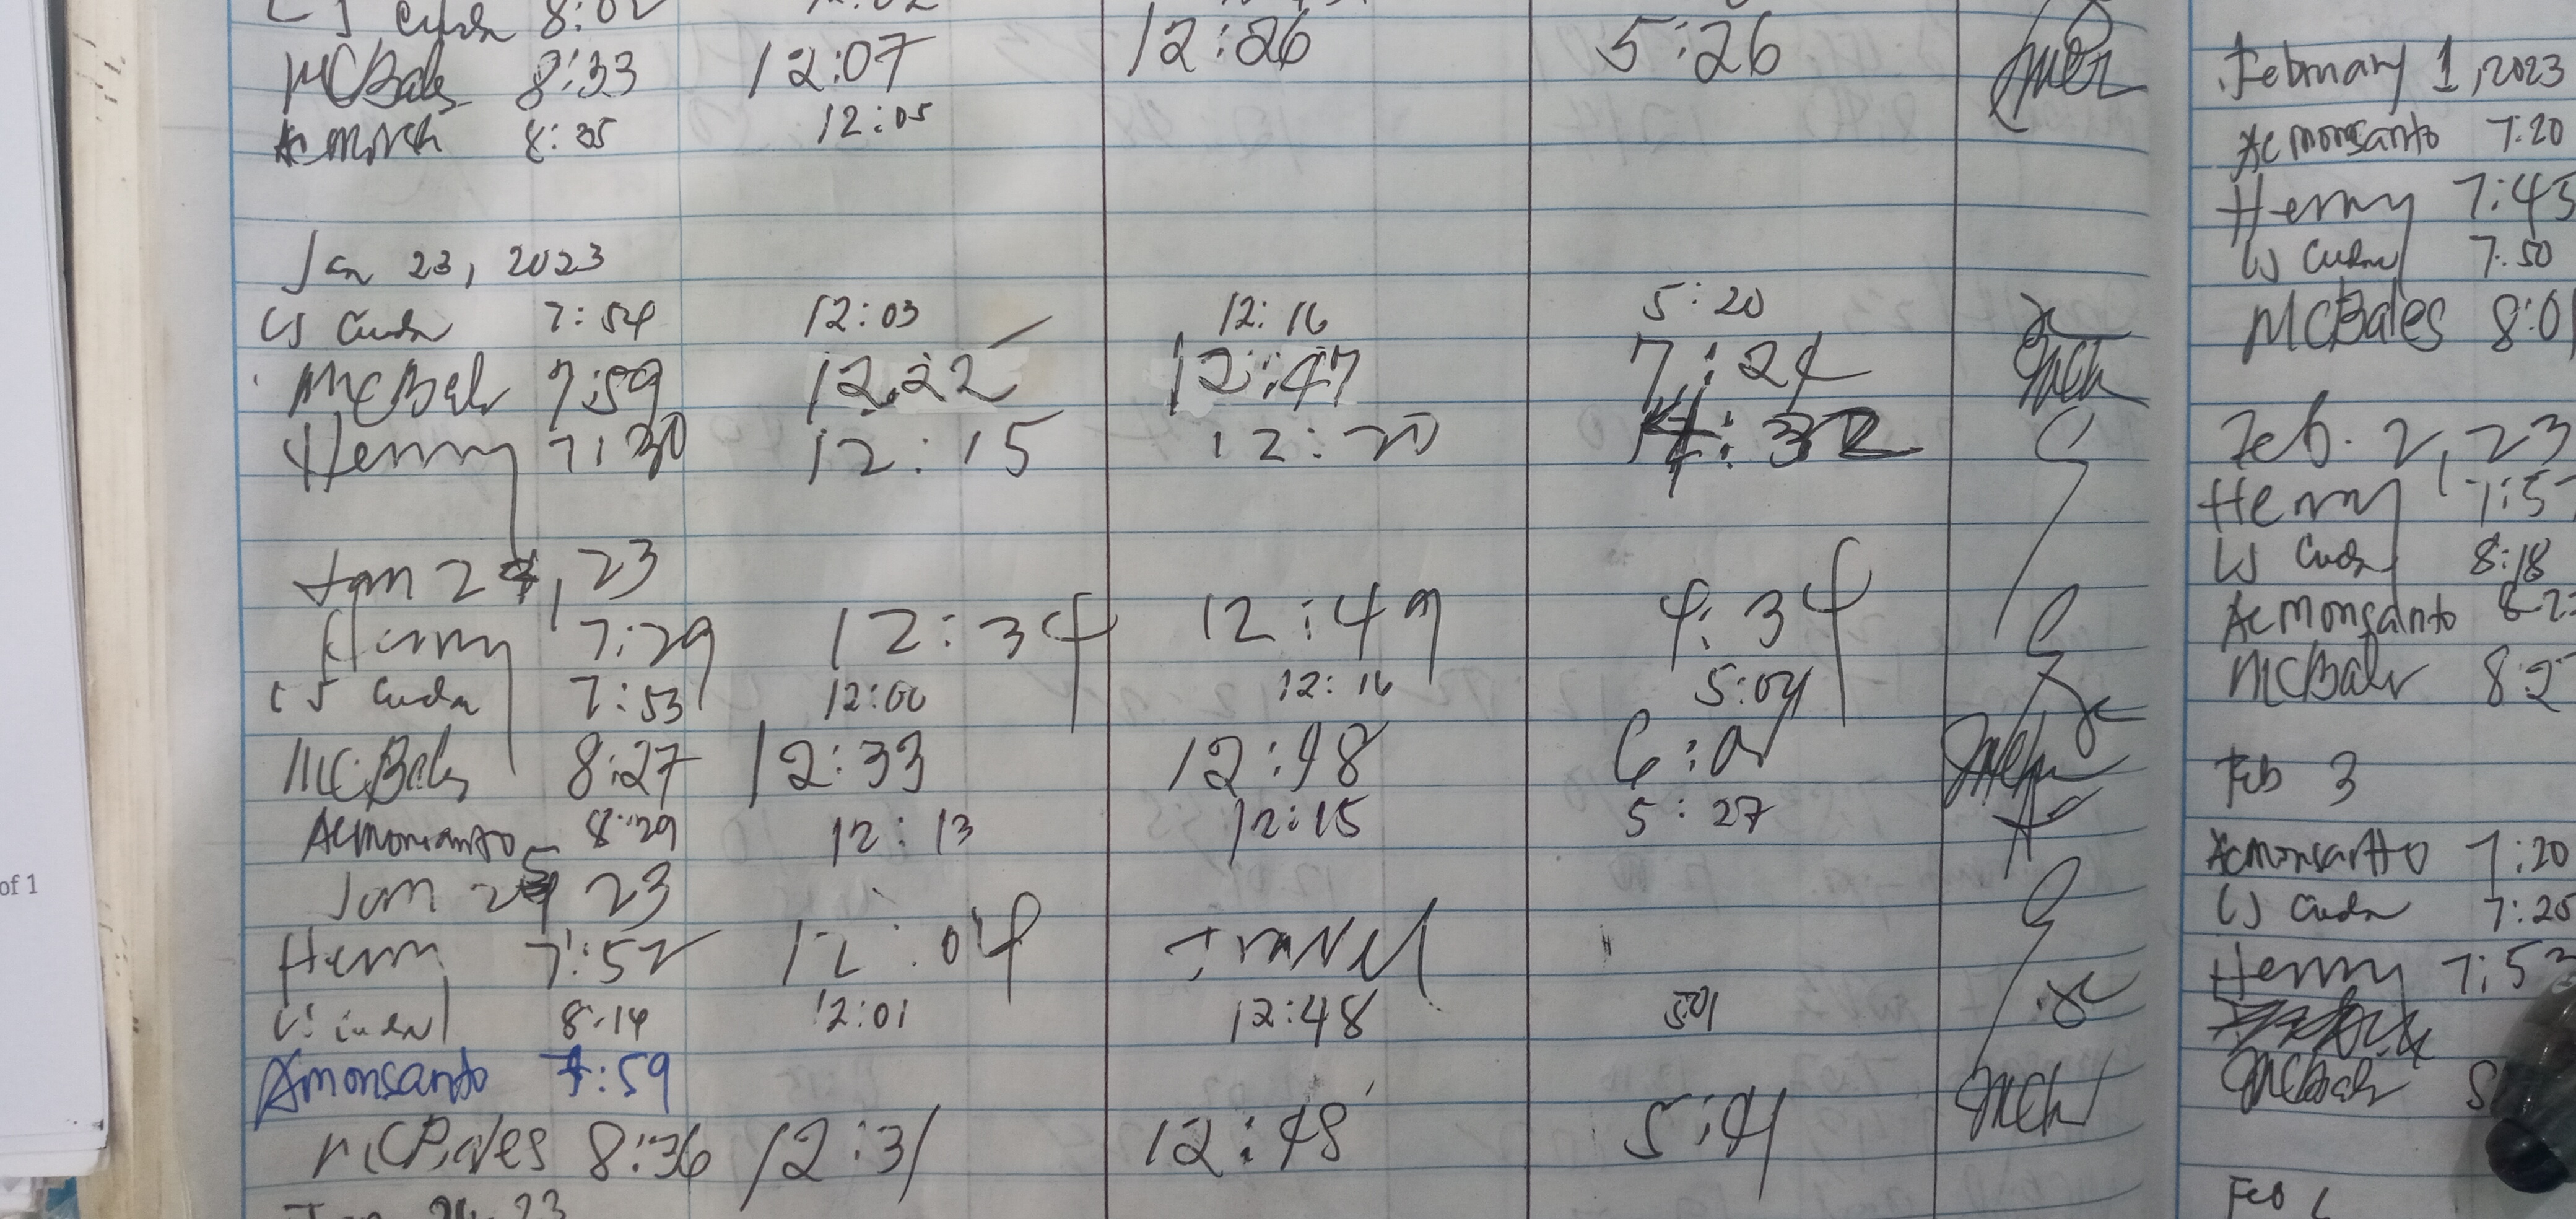 MCBales 8:33 12:07 12:26 5:26
8:35 12:05
Jan 23, 2023
CJ Cuda 7:54 12:03 12:16 5:20
McBales 7:59 12:22 12:47 7:24
Henry 7:30 12:15 12:20 4:32
Jan 24, 23
Henry 7:29 12:34 12:49 4:34
CJ Cuda 7:53 12:00 12:16 5:04
MCBales 8:27 12:33 12:48
Acmonsanto 8:29 12:13 12:15 5:27
Jan 25 23
Henry 7:52 12:04 Travel
8:14 12:01 12:48 5:01
Amonsanto 7:59
MCBales 8:36 12:31 12:48 5:41
of 1
February 1, 2023
Acmonsanto 7:20
Henry 7:45
CJ Cuda 7:50
MCBales 8:01
Feb. 2, 23
Henry 7:5
CJ Cuda 8:18
Acmonsanto 8:2
MCBales 8:27
Feb 3
Acmonsanto 7:20
CJ Cuda 7:25
Henry 7:53
McBales
Feb